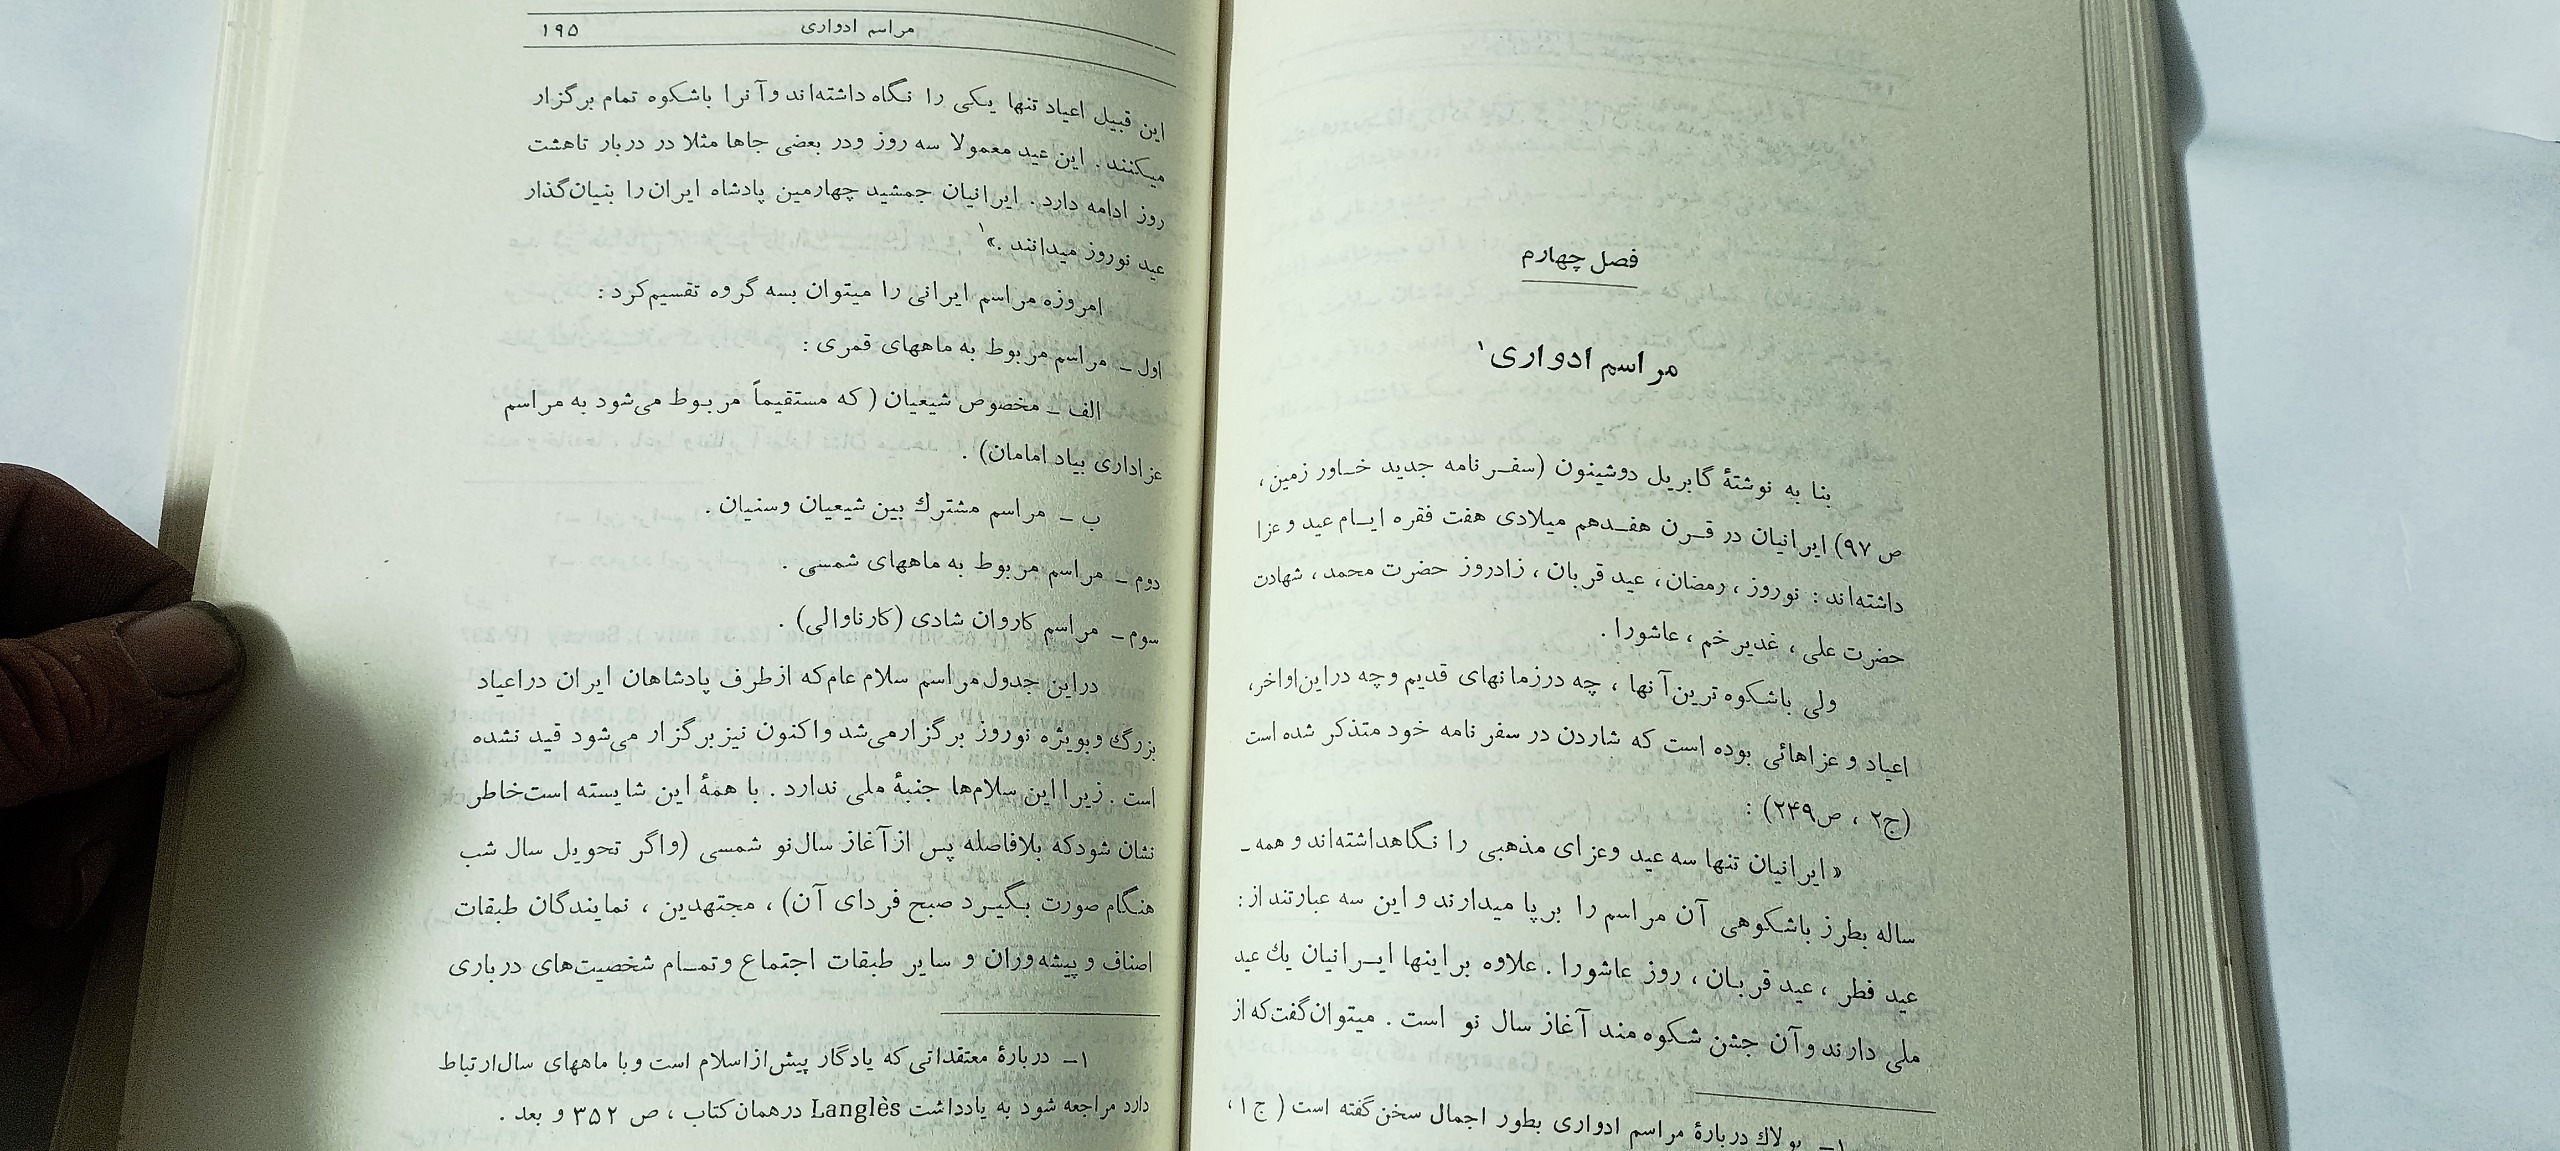 فصل چهارم
مراسم ادواری۱
بنا به نوشتهٔ گابریل دوشینون (سفرنامه جدید خاور زمین،
ص ۹۷) ایرانیان در قرن هفدهم میلادی هفت فقره ایام عید و عزا
داشته‌اند : نوروز ، رمضان ، عید قربان ، زادروز حضرت محمد ، شهادت
حضرت علی ، غدیر خم ، عاشورا .
ولی باشکوه ترین آنها ، چه درزمانهای قدیم وچه دراین‌اواخر،
اعیاد و عزاهائی بوده است که شاردن در سفر نامه خود متذکر شده است
(ج۲ ، ص۲۴۹) :
« ایرانیان تنها سه عید وعزای مذهبی را نگاهداشته‌اند و همه ـ
ساله بطرز باشکوهی آن مراسم را برپا میدارند و این سه عبارتند از :
عید فطر ، عید قربان ، روز عاشورا . علاوه براینها ایرانیان یك عید
ملی دارند وآن جشن شکوه مند آغاز سال نو است . میتوان‌گفت‌که از
۱ـ پولاك دربارهٔ مراسم ادواری بطور اجمال سخن‌گفته است ( ج ۱ ،
مراسم ادواری ۱۹۵
این قبیل اعیاد تنها یکی را نگاه داشته‌اند وآنرا باشکوه تمام برگزار
میکنند . این عید معمولا سه روز ودر بعضی جاها مثلا در دربار تاهشت
روز ادامه دارد . ایرانیان جمشید چهارمین پادشاه ایران‌را بنیان‌گذار
عید نوروز میدانند .»۱
امروزه مراسم ایرانی را میتوان بسه گروه تقسیم‌کرد :
اول ـ مراسم مربوط به ماههای قمری :
الف ـ مخصوص شیعیان ( که مستقیماً مربوط می‌شود به مراسم
عزاداری بیاد امامان) .
ب ـ مراسم مشترك بین شیعیان وسنیان .
دوم ـ مراسم مربوط به ماههای شمسی .
سوم ـ مراسم کاروان شادی (کارناوالی) .
دراین جدول مراسم سلام عام‌که ازطرف پادشاهان ایران دراعیاد
بزرگ وبویژه نوروز برگزارمی‌شد واکنون نیزبرگزار می‌شود قید نشده
است . زیرا این سلام‌ها جنبهٔ ملی ندارد . با همهٔ این شایسته است‌خاطر
نشان شودکه بلافاصله پس ازآغاز سال‌نو شمسی (واگر تحویل سال شب
هنگام صورت بگیرد صبح فردای آن) ، مجتهدین ، نمایندگان طبقات
اصناف و پیشه‌وران و سایر طبقات اجتماع وتمام شخصیت‌های درباری
۱ـ دربارهٔ معتقداتی‌که یادگار پیش‌ازاسلام است وبا ماههای سال‌ارتباط
دارد مراجعه شود به یادداشت Langlès درهمان‌کتاب ، ص ۳۵۲ و بعد .